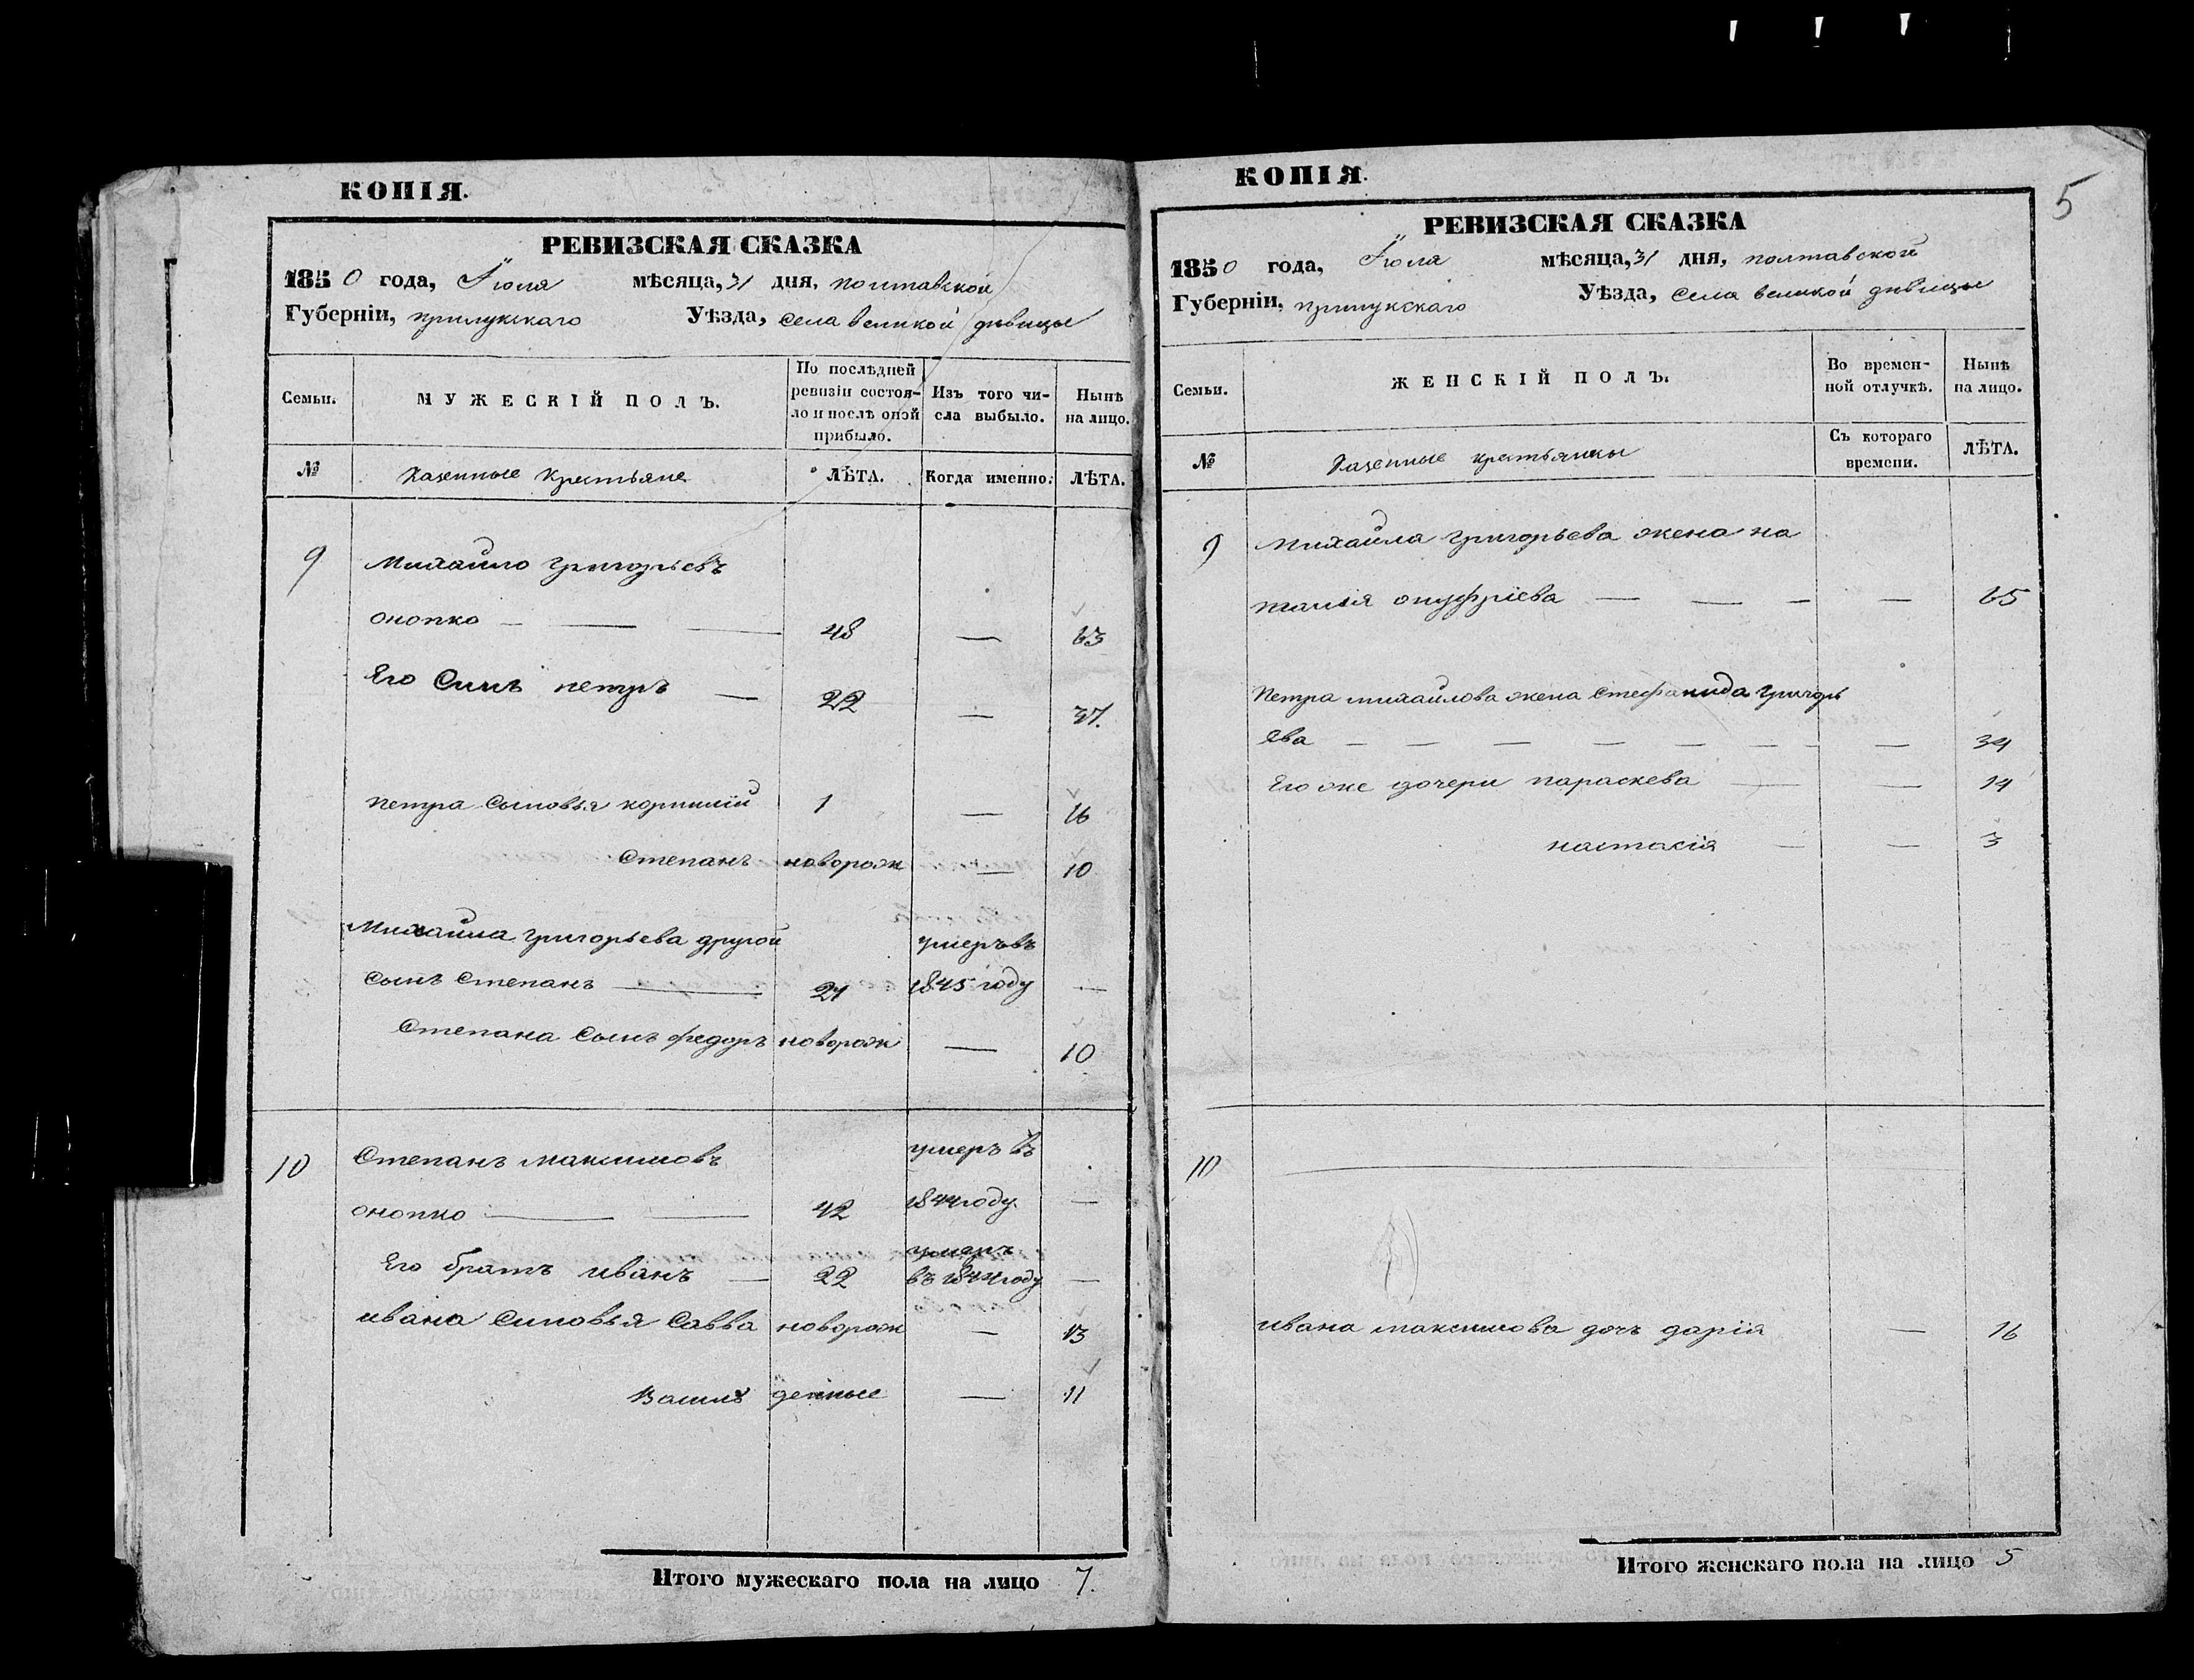 КОПІЯ.
РЕВИЗСКАЯ СКАЗКА
1850 года, Іюля мѣсяца, 31 дня, полтавской
Губерніи, прилукскаго Уѣзда, села великой дѣвицы
Семьи.
МУЖЕСКІЙ ПОЛЪ.
По послѣдней ревизіи состоя-
ло и послѣ оной прибыло.
Изъ того чи-
сла выбыло.
Нынѣ
на лицо.
№
Казенные крестьяне
ЛѢТА.
Когда именно.
ЛѢТА.
9 Михайло григорьевъ
онопко — — — 48 — 63
Его Синъ петръ — 22 — 37.
петра сыновья корнилій 1 — 16
Степанъ новорож — 10
Михайла григорьева другой умеръ въ
сынъ Степанъ — 21 1845 году —
Степана сынъ федоръ новорож — 10
10 Степанъ максимовъ умеръ въ
онопко — — 42 1844 году —
умеръ
Его братъ иванъ — 22 въ 1844 году —
ивана синовья Савва новорож — 13
Василь денные — 11
Итого мужескаго пола на лицо 7.
КОПІЯ.
5
РЕВИЗСКАЯ СКАЗКА
1850 года, Іюля мѣсяца, 31 дня, полтавской
Губерніи, прилукскаго Уѣзда, села великой дѣвицы
Семьи.
ЖЕНСКІЙ ПОЛЪ.
Во времен-
ной отлучкѣ.
Нынѣ
на лицо.
№
Казенные крестьянки
Съ котораго
времени.
ЛѢТА.
9 Михайла григорьева жена на
талія онуфріева — — — — 65
Петра михайлова жена Стефанида григорь
ева — — — — — — — — 34
Его же дочери параскева — — 14
настасія — — 3
10
ивана максимова дочъ дарія — 16
Итого женскаго пола на лицо 5